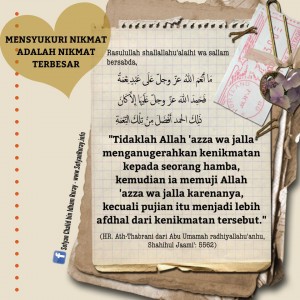 MENSYUKURI NIKMAT
ADALAH NIKMAT
TERBESAR
Rasulullah shallallahu'alaihi wa sallam
bersabda,
مَا أَنْعَمَ اللهُ عَزَّ وَجَلَّ عَلَى عَبْدٍ نِعْمَةً
فَحَمِدَ اللهَ عَزَّ وَجَلَّ عَلَيْهَا إِلَّا كَانَ
ذَلِكَ الْحَمْدُ أَفْضَلَ مِنْ تِلْكَ النِّعْمَةِ
"Tidaklah Allah 'azza wa jalla
menganugerahkan kenikmatan
kepada seorang hamba,
kemudian ia memuji Allah
'azza wa jalla karenanya,
kecuali pujian itu menjadi lebih
afdhal dari kenikmatan tersebut."
(HR. Ath-Thabrani dari Abu Umamah radhiyallahu'anhu,
Shahihul Jaami': 5562)
Sofyan Chalid bin Idham Ruray - www.SofyanRuray.info